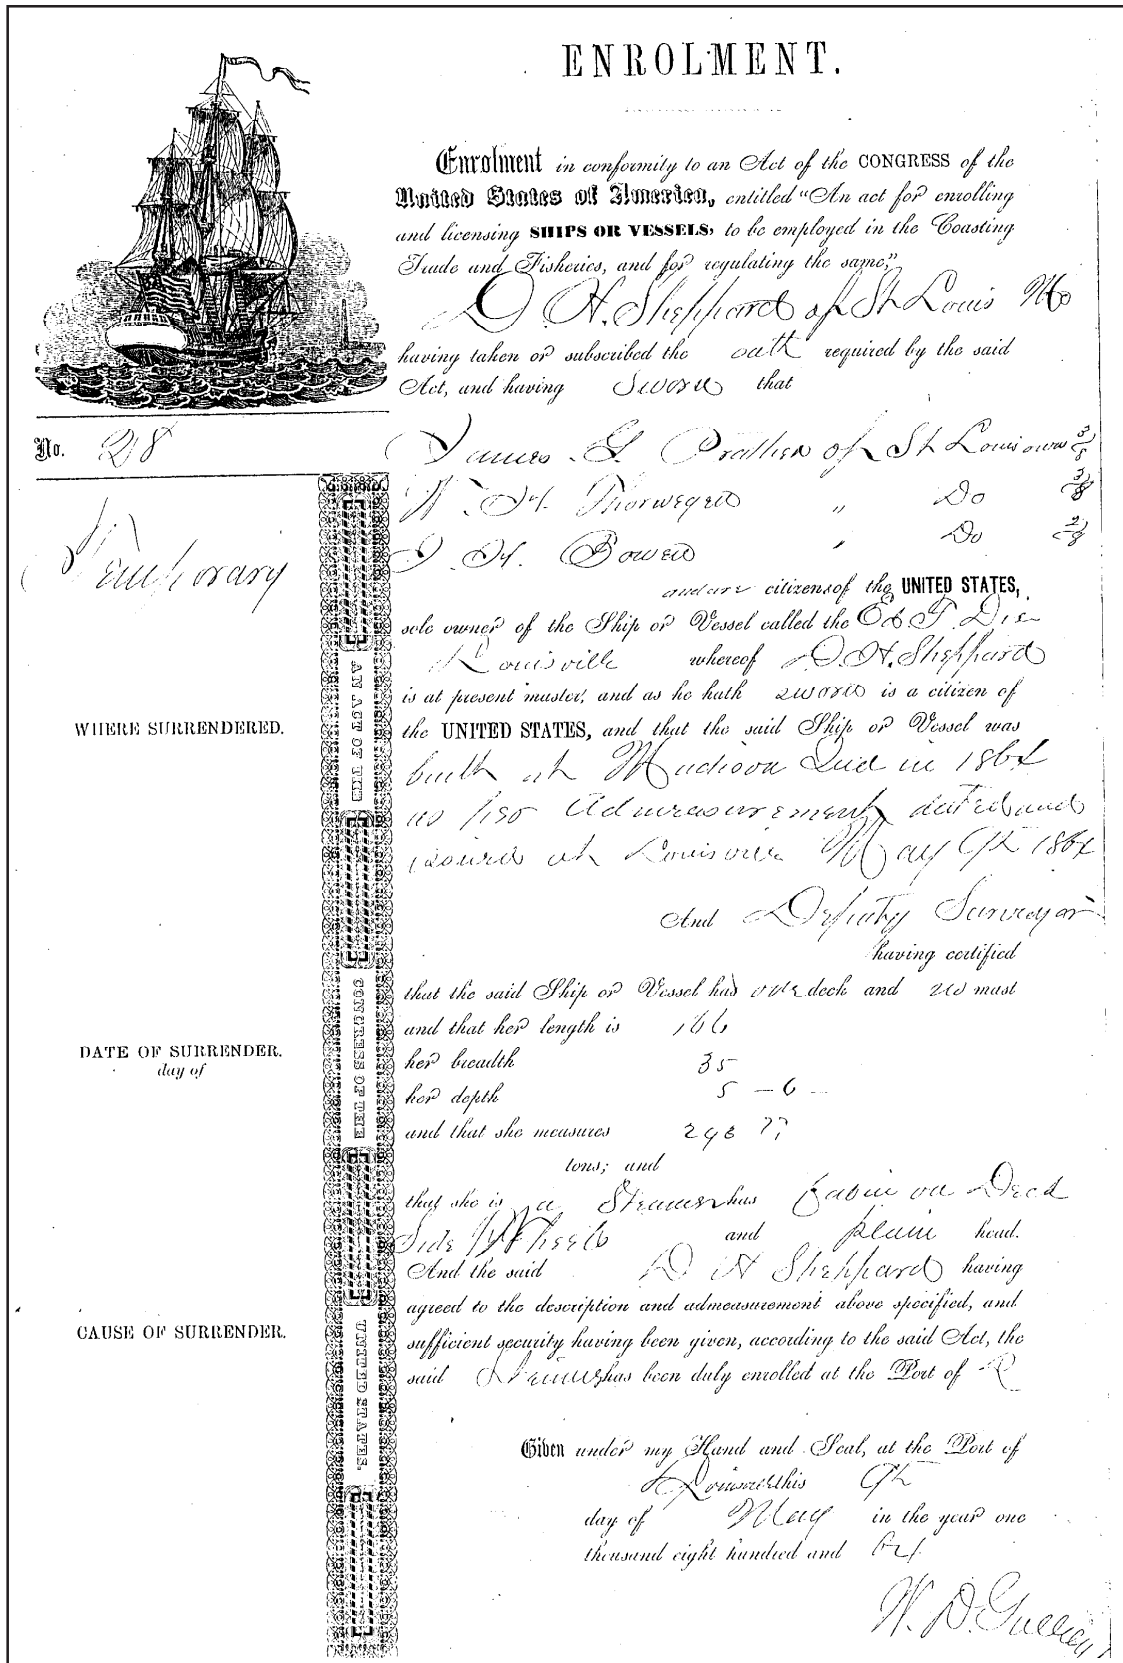 ENROLMENT.
Enrolment in conformity to an Act of the CONGRESS of the
United States of America, entitled "An act for enrolling
and licensing SHIPS OR VESSELS, to be employed in the Coasting
Trade and Fisheries, and for regulating the same,"
D. H. Sheppard of St Louis Mo
having taken or subscribed the oath required by the said
Act, and having Sworn that
No. 28
James of St Louis owns
W. H. Thorwegen " Do 3/8
H. Bowen " Do 2/8
Temporary
and are citizens of the UNITED STATES,
sole owner of the Ship or Vessel called the
Louisville whereof D. H. Sheppard
is at present master, and as he hath sworn is a citizen of
WHERE SURRENDERED.
the UNITED STATES, and that the said Ship or Vessel was
built at Madison Ind in 1864
as per Admeasurement dated and
issued at Louisville May 9th 1864
And Deputy Surveyor
having certified
that the said Ship or Vessel has one deck and no mast
and that her length is 166
DATE OF SURRENDER.
day of
her breadth 35
her depth 5 - 6 -
and that she measures
tons; and
that she is a Steamer has Cabin on Deck
Side Wheels and plain head.
And the said D H Sheppard having
agreed to the description and admeasurement above specified, and
CAUSE OF SURRENDER.
sufficient security having been given, according to the said Act, the
said Steamer has been duly enrolled at the Port of
Given under my Hand and Seal, at the Port of
Louisville this 9th
day of May in the year one
thousand eight hundred and 64
AN ACT OF THE
CONGRESS OF THE
UNITED STATES.